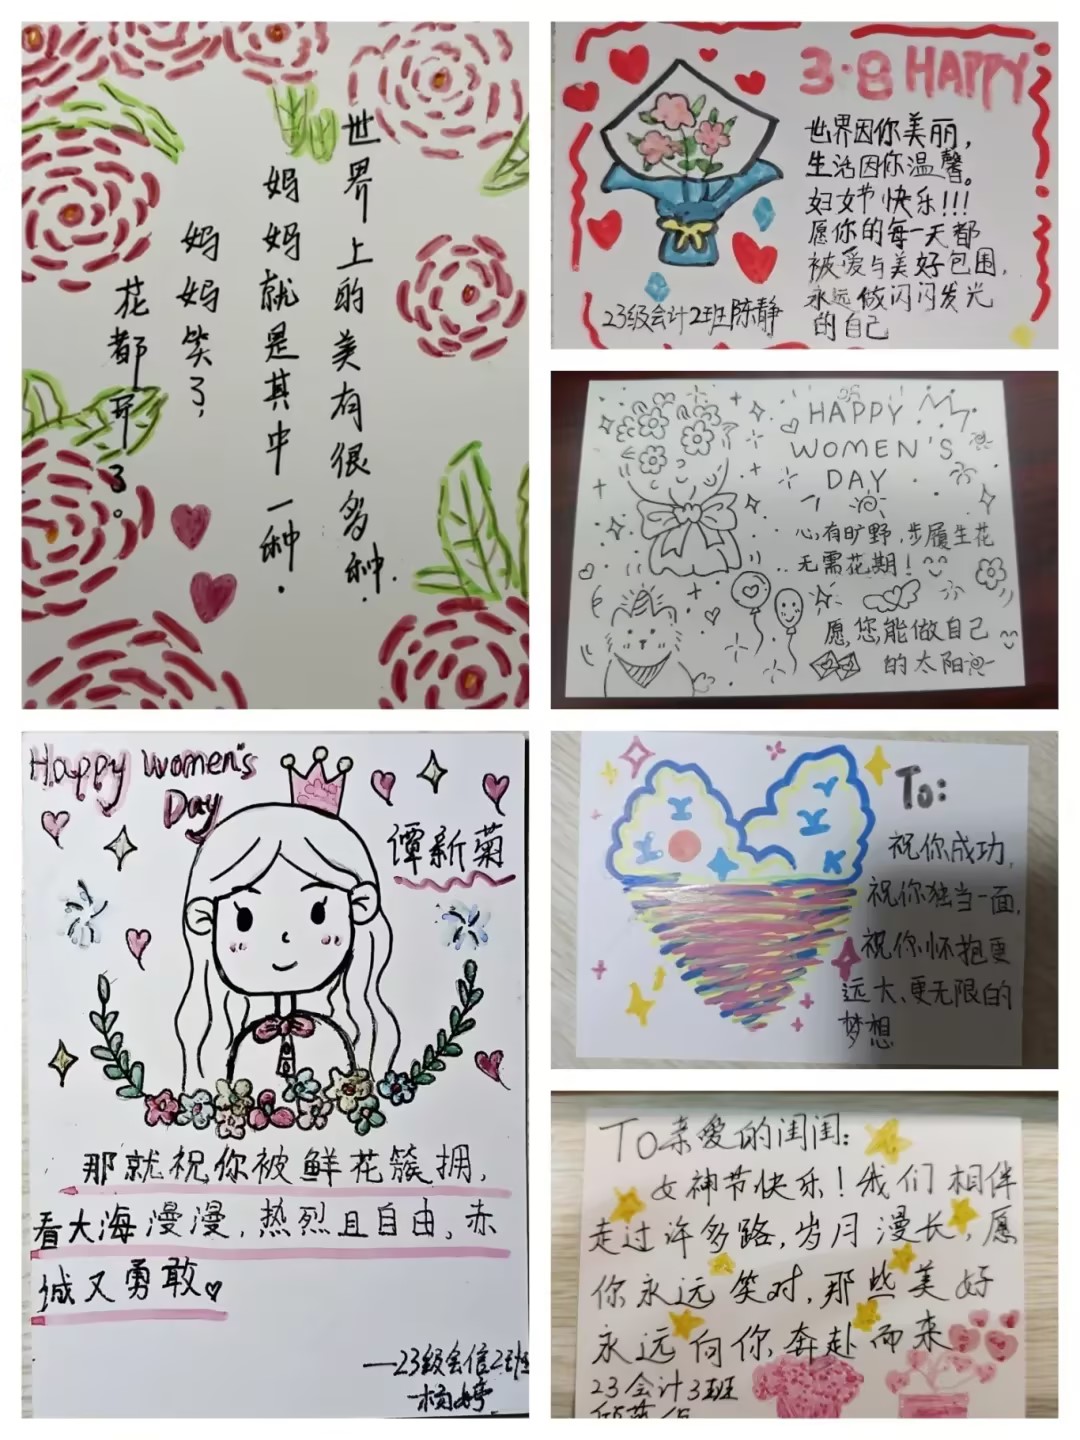 世界上的美有很多种.
妈妈就是其中一种.
妈妈笑了,
花都开了。
3·8 HAPPY
世界因你美丽,
生活因你温馨。
妇女节快乐!!!
愿你的每一天都
被爱与美好包围,
永远做闪闪发光
的自己
23级会计2班陈静
HAPPY
WOMEN'S
DAY
心有旷野,步履生花
无需花期!
愿,您,能做自己
的太阳
Happy Women's
Day
谭新菊
那就祝你被鲜花簇拥,
看大海漫漫,热烈且自由,赤
诚又勇敢
—23级会信2班
杨婷
To:
祝你成功,
祝你独当一面,
祝你怀抱更
远大、更无限的
梦想
TO亲爱的闺闺:
女神节快乐!我们相伴
走过许多路,岁月漫长,愿
你永远笑对,那些美好
永远向你奔赴而来
23会计3班